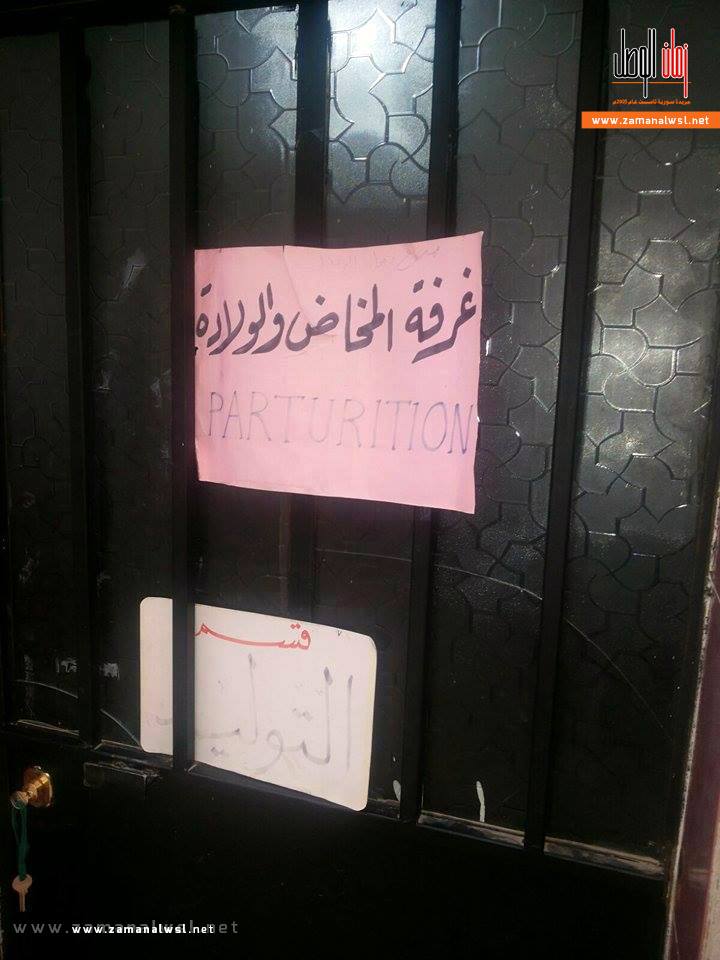 زمان الوصل
جريدة سورية تأسست عام 2005م
www.zamanalwsl.net
غرفة المخاض والولادة
PARTURITION
قسم
التوليد
www.zamanalwsl.net
www.zamanalwsl.net